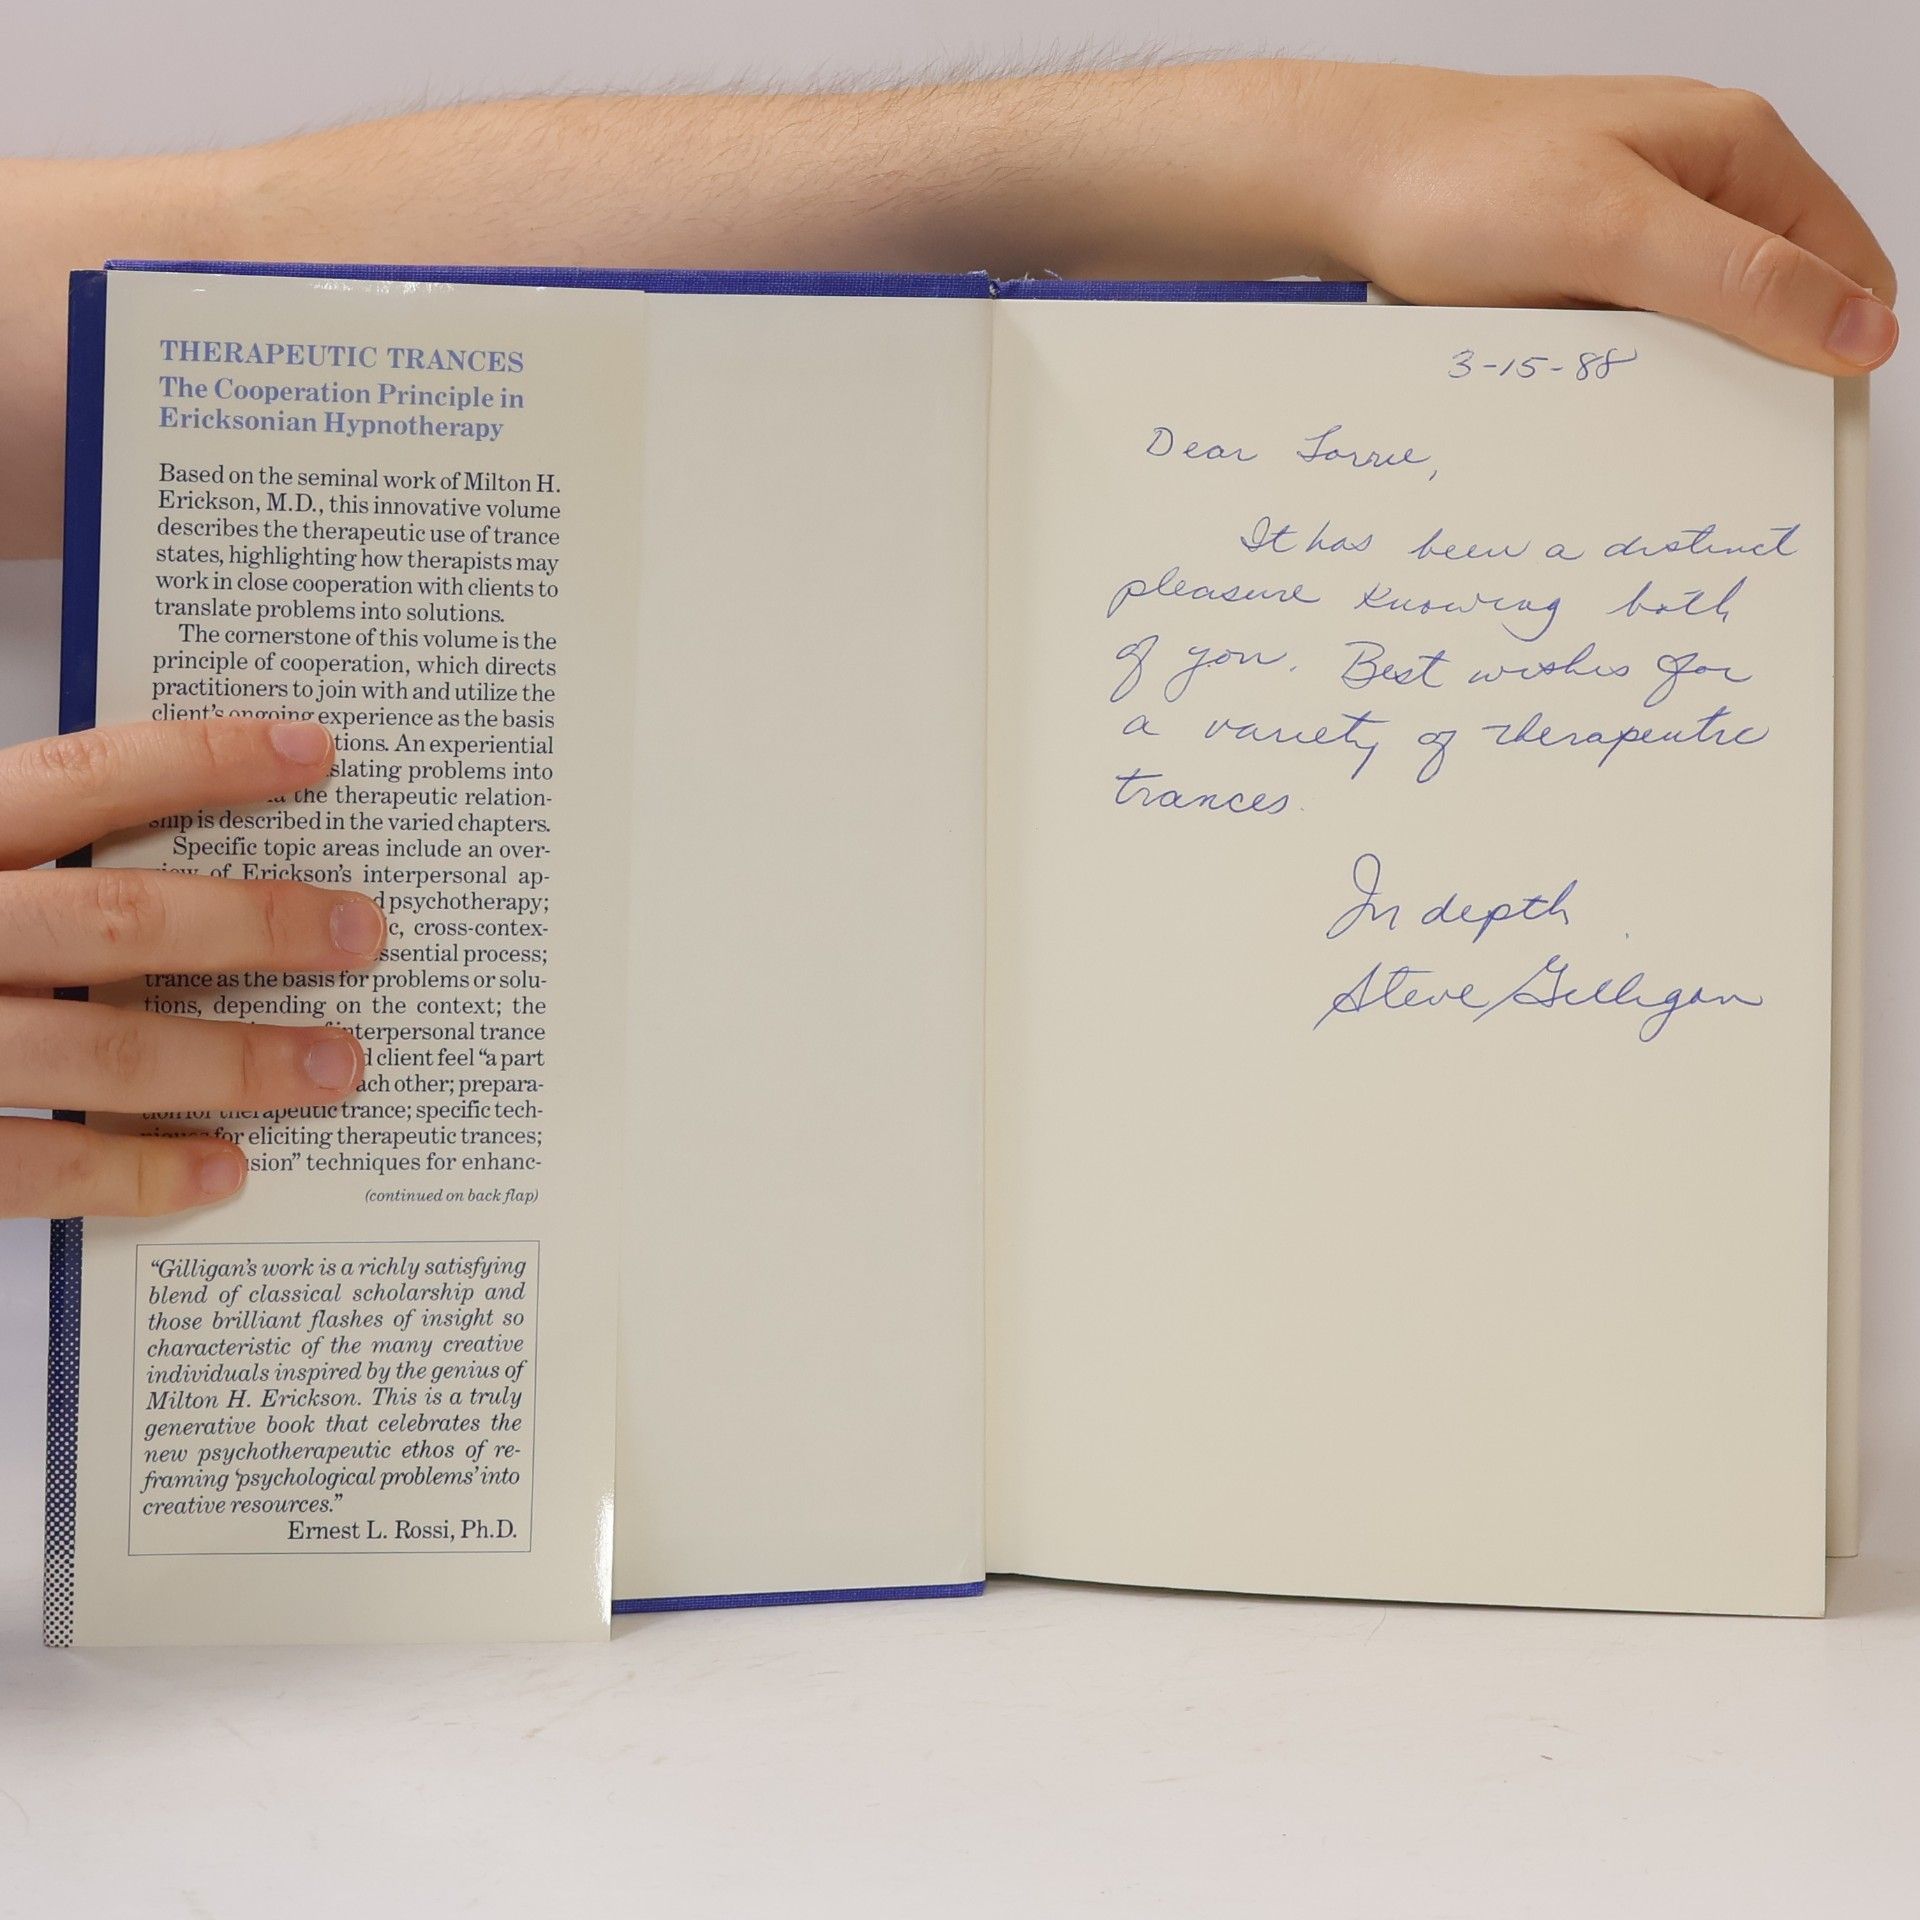 THERAPEUTIC TRANCES
The Cooperation Principle in
Ericksonian Hypnotherapy
Based on the seminal work of Milton H.
Erickson, M.D., this innovative volume
describes the therapeutic use of trance
states, highlighting how therapists may
work in close cooperation with clients to
translate problems into solutions.
The cornerstone of this volume is the
principle of cooperation, which directs
practitioners to join with and utilize the
client's ongoing experience as the basis
tions. An experiential
slating problems into
the therapeutic relation-
ship is described in the varied chapters.
Specific topic areas include an over-
view of Erickson's interpersonal ap-
d psychotherapy;
c, cross-contex-
ssential process;
trance as the basis for problems or solu-
tions, depending on the context; the
interpersonal trance
d client feel "a part
ach other; prepara-
tion for therapeutic trance; specific tech-
niques for eliciting therapeutic trances;
usion" techniques for enhanc-
(continued on back flap)
"Gilligan's work is a richly satisfying
blend of classical scholarship and
those brilliant flashes of insight so
characteristic of the many creative
individuals inspired by the genius of
Milton H. Erickson. This is a truly
generative book that celebrates the
new psychotherapeutic ethos of re-
framing 'psychological problems' into
creative resources."
Ernest L. Rossi, Ph.D.
3-15-88
Dear Lorrie,
It has been a distinct
pleasure knowing both
of you. Best wishes for
a variety of therapeutic
trances.
In depth
Steve Gilligan